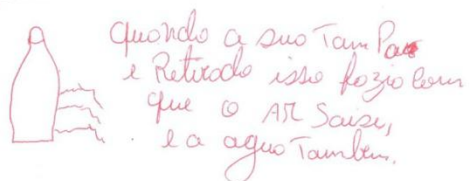 Quando a sua Tampa
é Retirada isso fazia com
que o AR Saise,
e a agua Tambem.